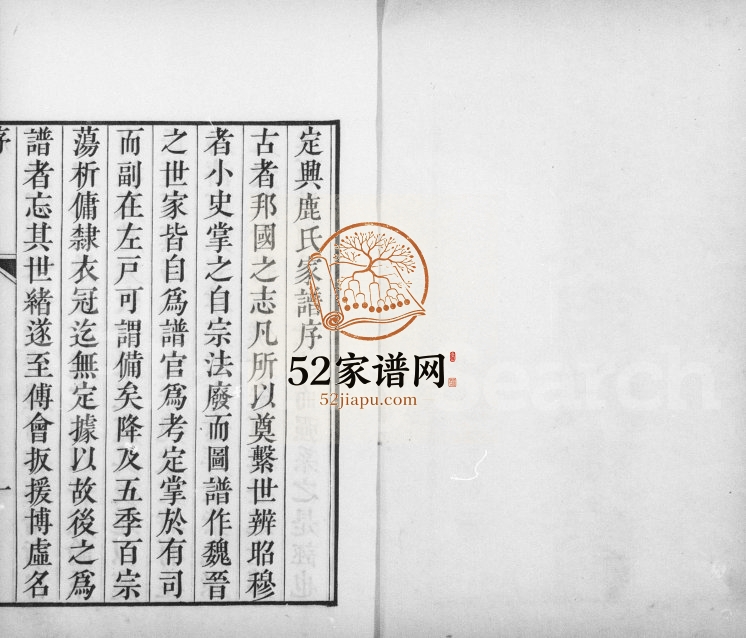 定興鹿氏家譜序
古者邦國之志凡所以奠繫世辨昭穆
者小史掌之自宗法廢而圖譜作魏晉
之世家皆自爲譜官爲考定掌於有司
而副在左戶可謂備矣降及五季百宗
蕩析傭隸衣冠迄無定據以故後之爲
譜者忘其世緒遂至傅會扳援博虛名
序
一
52家谱网
52jiapu.com